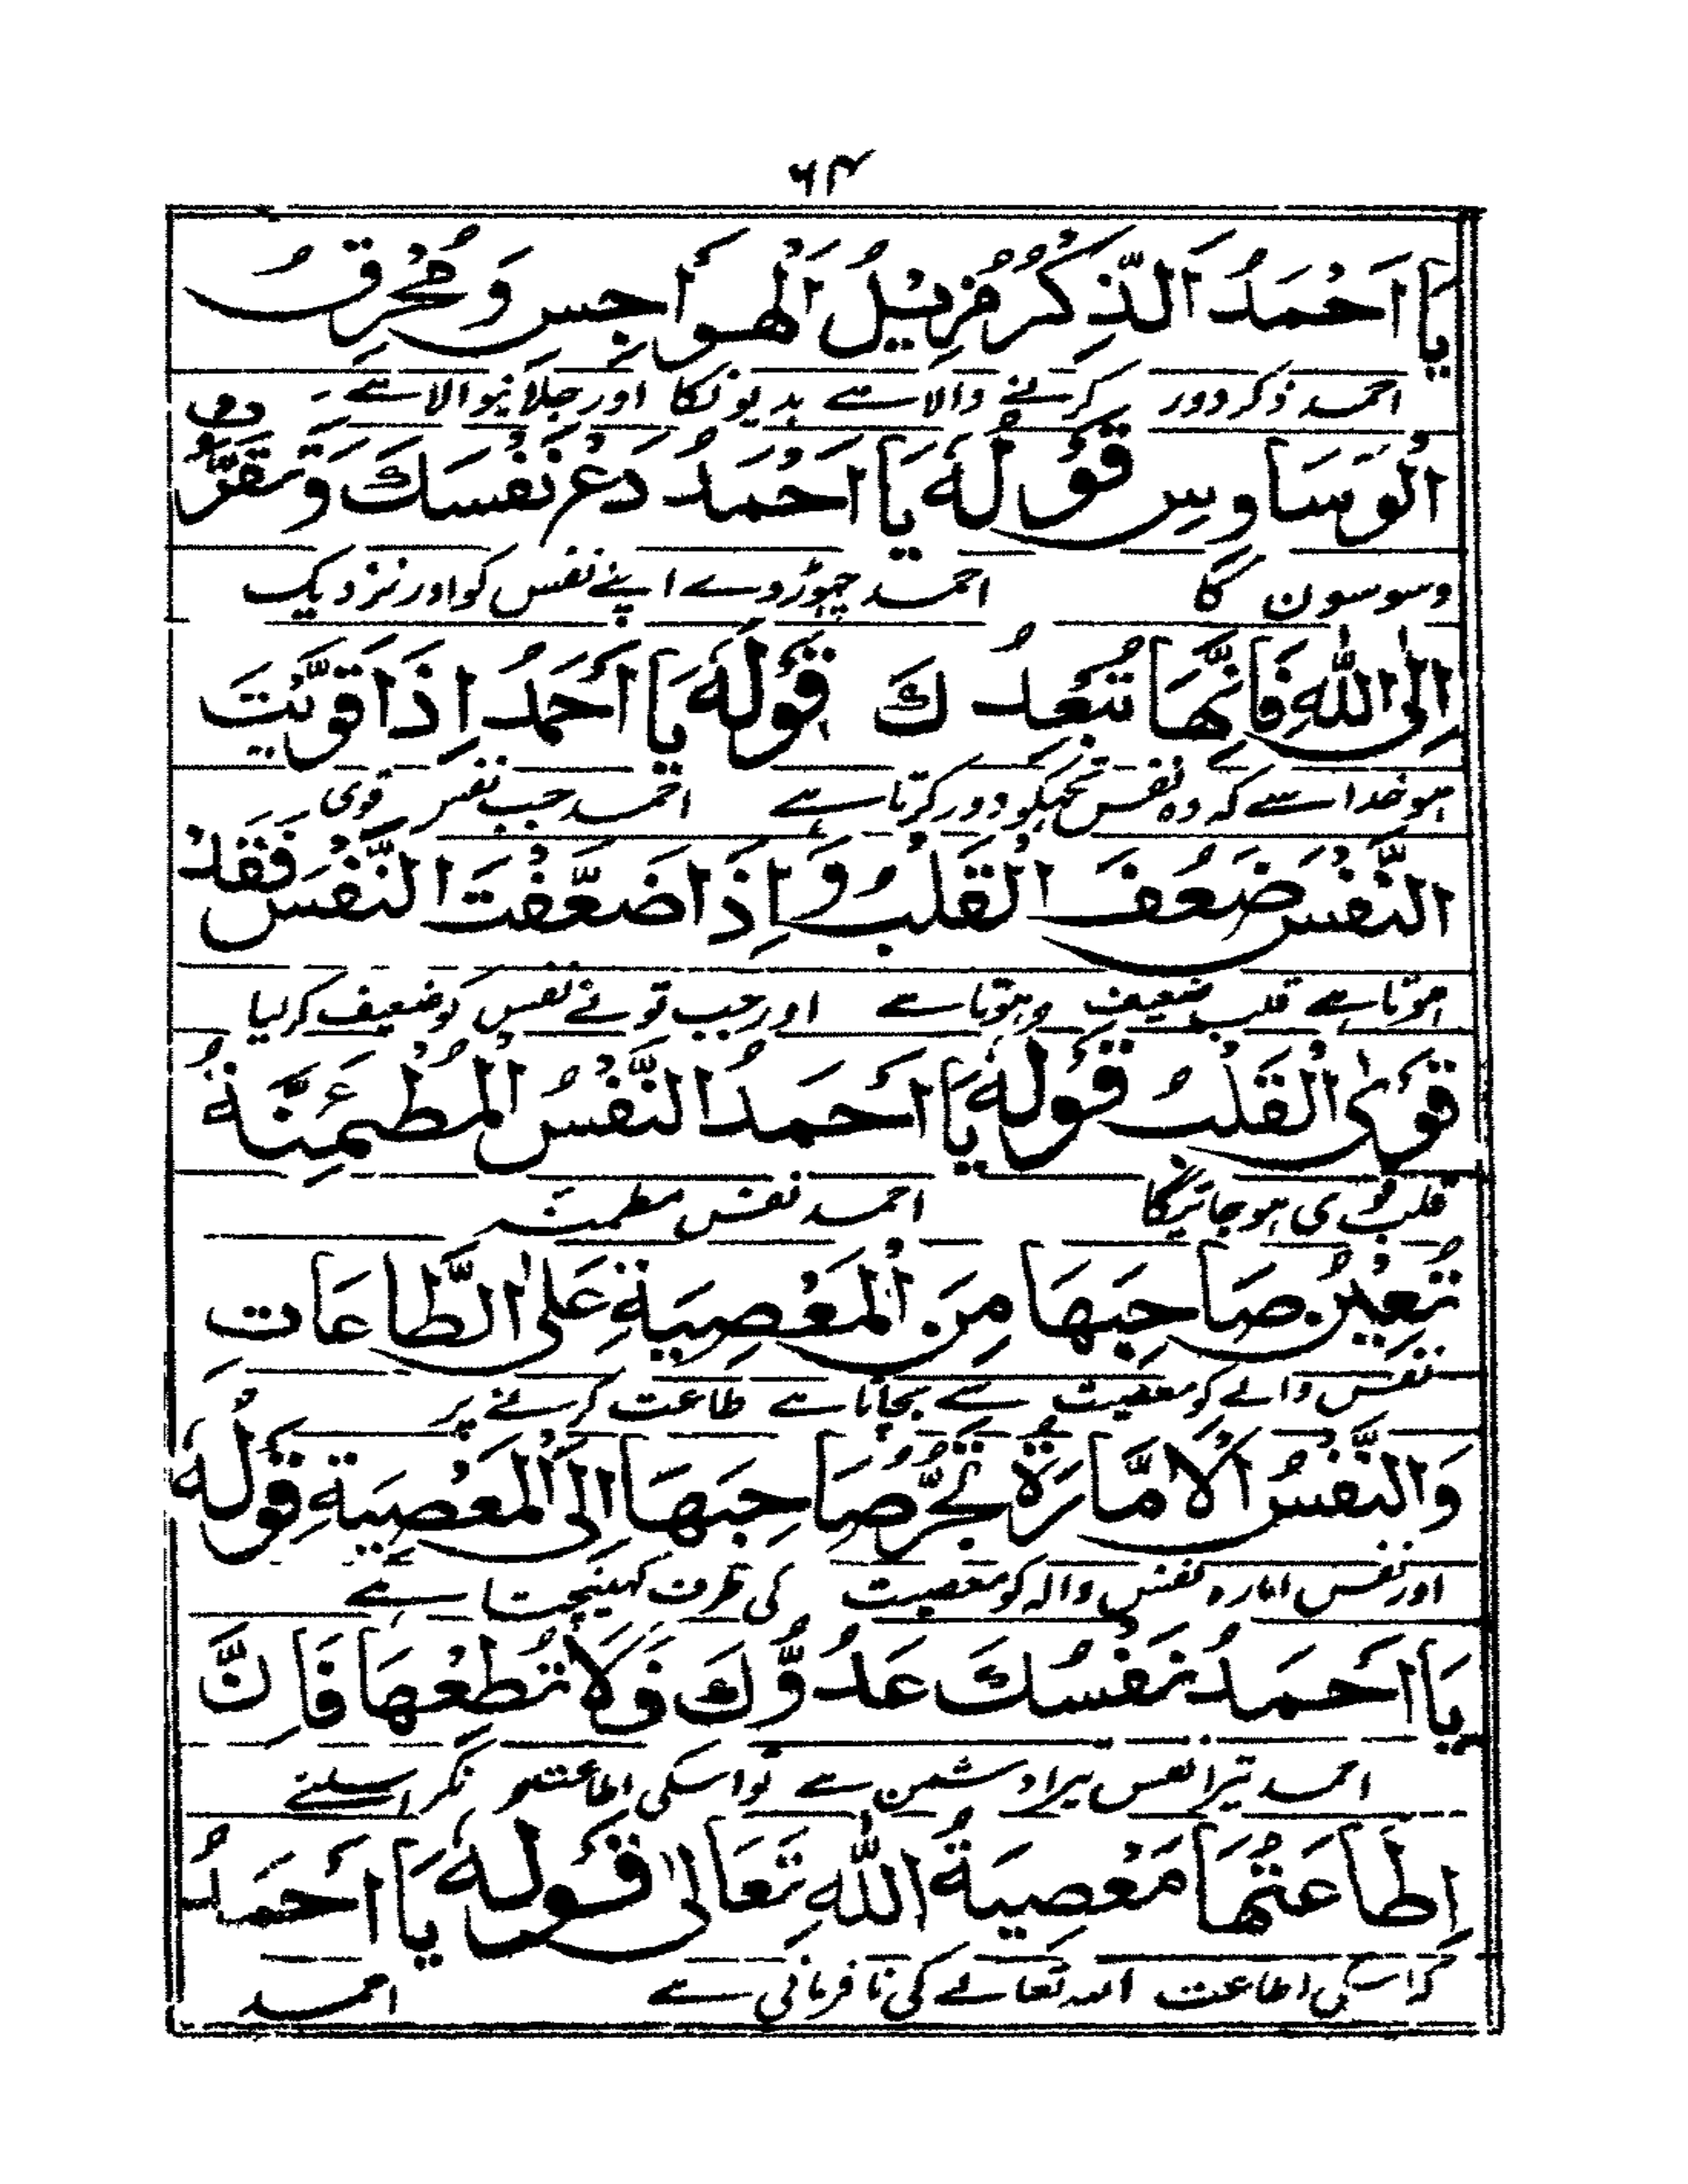 ۶۴
يَا اَحْمَدُ اَلذِّكْرُ مُزِيْلُ الْهَوَاجِسِ وَ مُحْرِقُ
احمد ذکر دور کرنے والا ہے بدیونکا اور جلانیوالا ہے
الْوَسَاوِسِ قَوْلُهٗ يَا اَحْمَدُ دَعْ نَفْسَكَ وَ تَقَرَّبْ
وسوسون کا احمد چہوڑ دے اپنے نفس کو اور نزدیک
اِلَى اللّٰهِ فَاِنَّهَا تُبَعِّدُكَ قَوْلُهٗ يَا اَحْمَدُ اِذَا قَوَّيْتَ
ہو خدا سے کہ وہ نفس تجہکو دور کرتا ہے احمد جب نفس قوی
النَّفْسَ ضَعُفَ الْقَلْبُ وَ اِذَا ضَعَّفْتَ النَّفْسَ فَقَدْ
ہوتا ہے قلب ضعیف ہوتا ہے اور جب تو نے نفس کو ضعیف کرلیا
قَوَى الْقَلْبُ قَوْلُهٗ يَا اَحْمَدُ النَّفْسُ الْمُطْمَئِنَّةُ
قلب قوی ہو جائیگا احمد نفس مطمئنہ
تُعِيْنُ صَاحِبَهَا مِنَ الْمَعْصِيَةِ عَلَى الطَّاعَاتِ
نفس والے کو معصیت سے بچاتا ہے طاعت کرنے پر
وَالنَّفْسُ الْاَمَّارَةُ تَجُرُّ صَاحِبَهَا اِلَى الْمَعْصِيَةِ قَوْلُهٗ
اور نفس امارہ نفس والہ کو معصیت کی طرف کہینچتا ہے
يَا اَحْمَدُ نَفْسُكَ عَدُوُّكَ فَلَا تُطِعْهَا فَاِنَّ
احمد تیرا نفس تیرا دشمن ہے تو اسکی اطاعت نکر اسلئے
اِطَاعَتُهَا مَعْصِيَةُ اللّٰهِ تَعَالٰى قَوْلُهٗ يَا اَحْمَدُ
کہ اسکی اطاعت اللہ تعالے کی نافرمانی ہے احمد